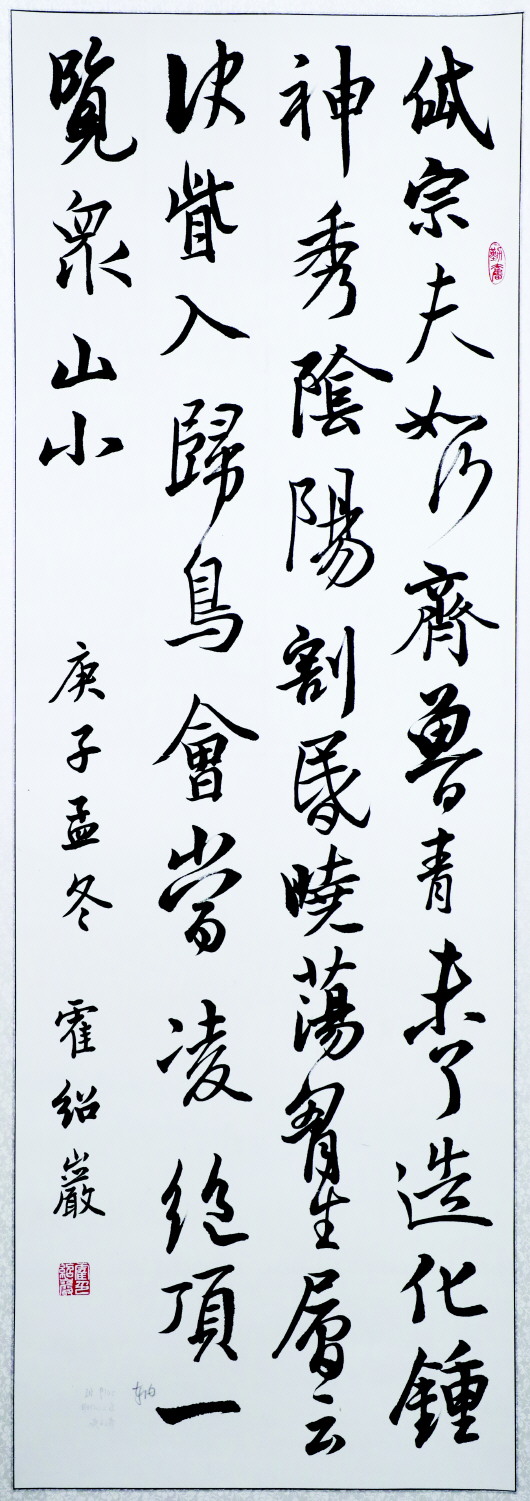 岱宗夫如何齊魯青未了造化鍾
神秀陰陽割昬曉蕩胷生層云
決眥入歸鳥會當凌絕頂一
覽衆山小
庚子孟冬 霍紹巖
勤奮